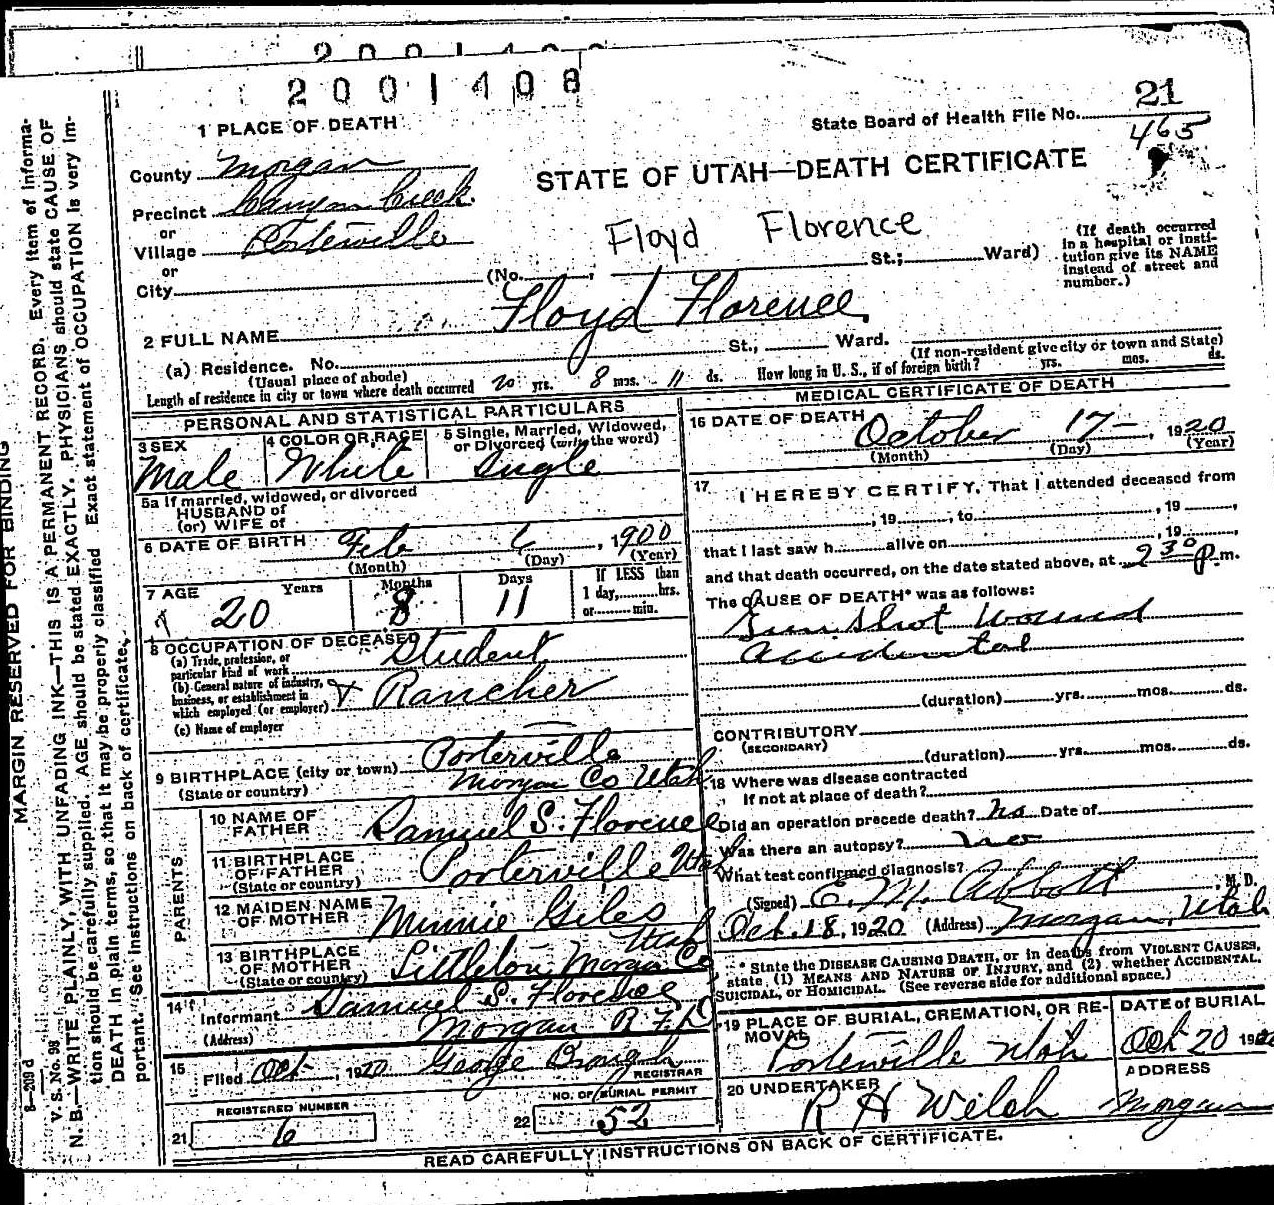 2001408
2001408
1 PLACE OF DEATH
State Board of Health File No. 21
465
County Morgan
STATE OF UTAH—DEATH CERTIFICATE
Precinct Canyon Creek
or
Village Porterville
or
City (No. , St.; Ward)
Floyd Florence
(If death occurred
in a hospital or insti-
tution give its NAME
instead of street and
number.)
2 FULL NAME Floyd Florence
(a) Residence. No. St., Ward.
(Usual place of abode)
(If non-resident give city or town and State)
Length of residence in city or town where death occurred 20 yrs. 8 mos. 11 ds. How long in U. S., if of foreign birth? yrs. mos. ds.
PERSONAL AND STATISTICAL PARTICULARS
3 SEX
Male
4 COLOR OR RACE
White
5 Single, Married, Widowed,
or Divorced (write the word)
Single
5a If married, widowed, or divorced
HUSBAND of
(or) WIFE of
6 DATE OF BIRTH Feb 6, 1900
(Month) (Day) (Year)
7 AGE Years Months Days
20 8 11
If LESS than
1 day, hrs.
or min.
8 OCCUPATION OF DECEASED
(a) Trade, profession, or
particular kind of work Student
(b) General nature of industry,
business, or establishment in
which employed (or employer) & Rancher
(c) Name of employer
9 BIRTHPLACE (city or town) Porterville
(State or country) Morgan Co Utah
PARENTS
10 NAME OF
FATHER Samuel S. Florence
11 BIRTHPLACE
OF FATHER
(State or country) Porterville Utah
12 MAIDEN NAME
OF MOTHER Minnie Giles
13 BIRTHPLACE
OF MOTHER
(State or country) Littleton Morgan Co Utah
14 Informant Samuel S. Florence
(Address) Morgan R F D
15 Filed Oct, 1920 George Brough
REGISTRAR
REGISTERED NUMBER
21 6
NO. OF BURIAL PERMIT
22 52
MEDICAL CERTIFICATE OF DEATH
16 DATE OF DEATH
October 17, 1920
(Month) (Day) (Year)
17 I HEREBY CERTIFY, That I attended deceased from
, 19 , to , 19 ,
that I last saw h alive on , 19 ,
and that death occurred, on the date stated above, at 2 30 P.m.
The CAUSE OF DEATH* was as follows:
Gun shot wound
accidental
(duration) yrs. mos. ds.
CONTRIBUTORY
(SECONDARY)
(duration) yrs. mos. ds.
18 Where was disease contracted
If not at place of death?
Did an operation precede death? No Date of
Was there an autopsy? No
What test confirmed diagnosis?
(Signed) E. M. Abbott, M. D.
Oct. 18, 1920 (Address) Morgan, Utah
* State the DISEASE CAUSING DEATH, or in deaths from VIOLENT CAUSES,
state, (1) MEANS AND NATURE OF INJURY, and (2) whether ACCIDENTAL,
SUICIDAL, or HOMICIDAL. (See reverse side for additional space.)
19 PLACE OF BURIAL, CREMATION, OR RE-
MOVAL
Porterville Utah
DATE of BURIAL
Oct 20 1920
20 UNDERTAKER
R H Welch
ADDRESS
Morgan
READ CAREFULLY INSTRUCTIONS ON BACK OF CERTIFICATE.
MARGIN RESERVED FOR BINDING
V. S. No. 98
N. B.—WRITE PLAINLY, WITH UNFADING INK—THIS IS A PERMANENT RECORD. Every item of informa-
tion should be carefully supplied. AGE should be stated EXACTLY. PHYSICIANS should state CAUSE OF
DEATH in plain terms, so that it may be properly classified. Exact statement of OCCUPATION is very im-
portant. See instructions on back of certificate.